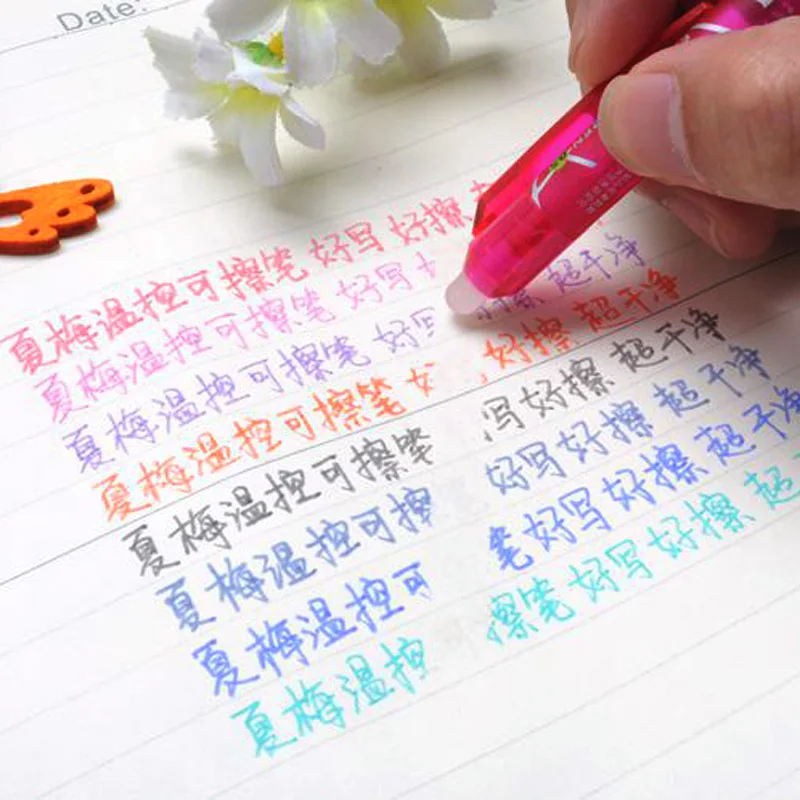 Date:
夏梅温控可擦笔 好写 好擦
夏梅温控可擦笔 好写
夏梅温控可擦笔 好写 擦 超干净
夏梅温控可擦笔 好擦 超干净
夏梅温控可擦笔 写好擦 超干净
夏梅温控可擦 好写好擦 超干净
夏梅温控可 笔好写好擦 超干净
夏梅温控 擦笔 好写好擦 超